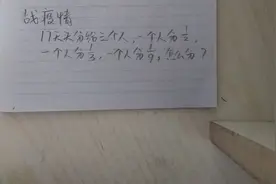 战疫情
17天天分给三个人,一个人分1/2,
一个人分1/3,一个人分1/9,怎么分?